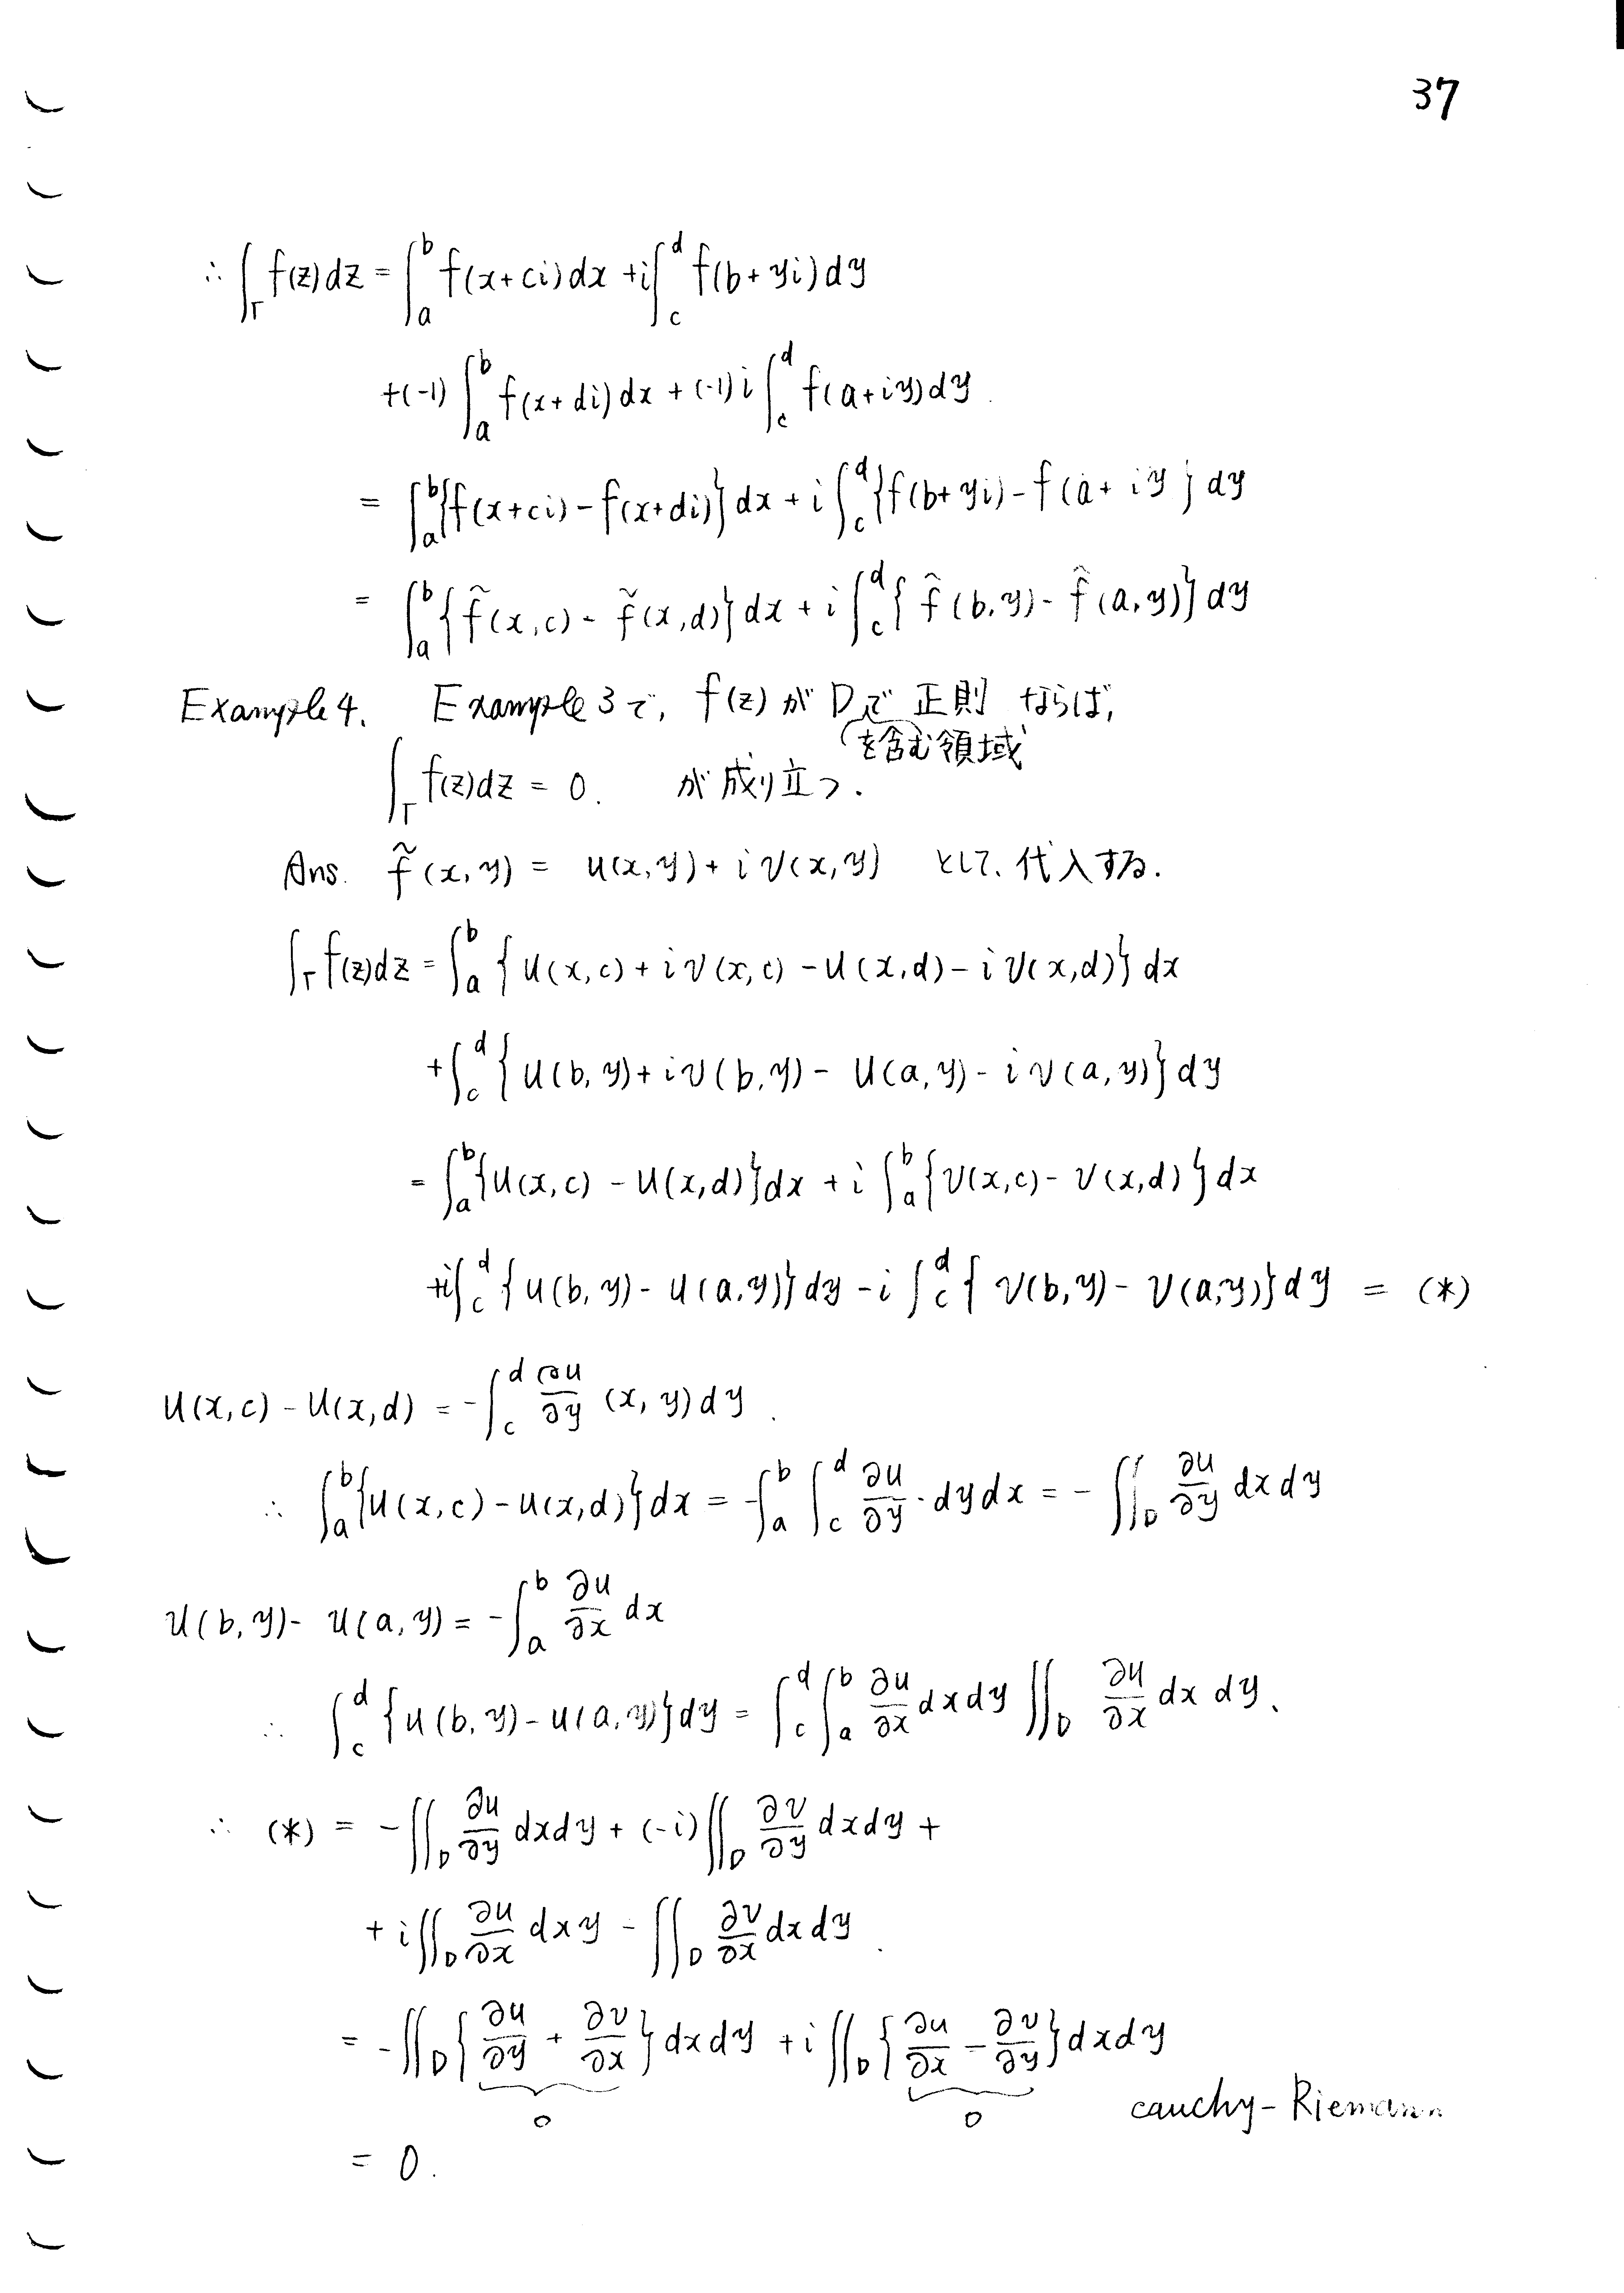 37
∴ ∫_Γ f(z)dz = ∫_a^b f(x+ci)dx + i∫_c^d f(b+yi)dy
+(-1)∫_a^b f(x+di)dx + (-1)i∫_c^d f(a+iy)dy.
= ∫_a^b{f(x+ci)-f(x+di)}dx + i∫_c^d{f(b+yi)-f(a+iy}dy
= ∫_a^b{f̃(x,c)-f̃(x,d)}dx + i∫_c^d{f̃(b,y)-f̃(a,y)}dy
Example 4. Example 3で, f(z)がDで正則ならば,
を含む領域
∫_Γ f(z)dz = 0. が成り立つ.
Ans. f̃(x,y) = u(x,y)+iv(x,y) として、代入する.
∫_Γ f(z)dz = ∫_a^b{u(x,c)+iv(x,c)-u(x,d)-iv(x,d)}dx
+∫_c^d{u(b,y)+iv(b,y)-u(a,y)-iv(a,y)}dy
= ∫_a^b{u(x,c)-u(x,d)}dx + i∫_a^b{v(x,c)-v(x,d)}dx
+i∫_c^d{u(b,y)-u(a,y)}dy - i∫_c^d{v(b,y)-v(a,y)}dy = (*)
u(x,c)-u(x,d) = -∫_c^d ∂u/∂y (x,y)dy.
∴ ∫_a^b{u(x,c)-u(x,d)}dx = -∫_a^b∫_c^d ∂u/∂y・dydx = -∬_D ∂u/∂y dxdy
u(b,y)-u(a,y) = -∫_a^b ∂u/∂x dx
∴ ∫_c^d{u(b,y)-u(a,y)}dy = ∫_c^d∫_a^b ∂u/∂x dxdy ∬_D ∂u/∂x dxdy、
∴ (*) = -∬_D ∂u/∂y dxdy + (-i)∬_D ∂v/∂y dxdy +
+ i∬_D ∂u/∂x dxy - ∬_D ∂v/∂x dxdy.
= -∬_D{∂u/∂y + ∂v/∂x}dxdy + i∬_D{∂u/∂x - ∂v/∂y}dxdy
0 0 cauchy-Riemann
= 0.